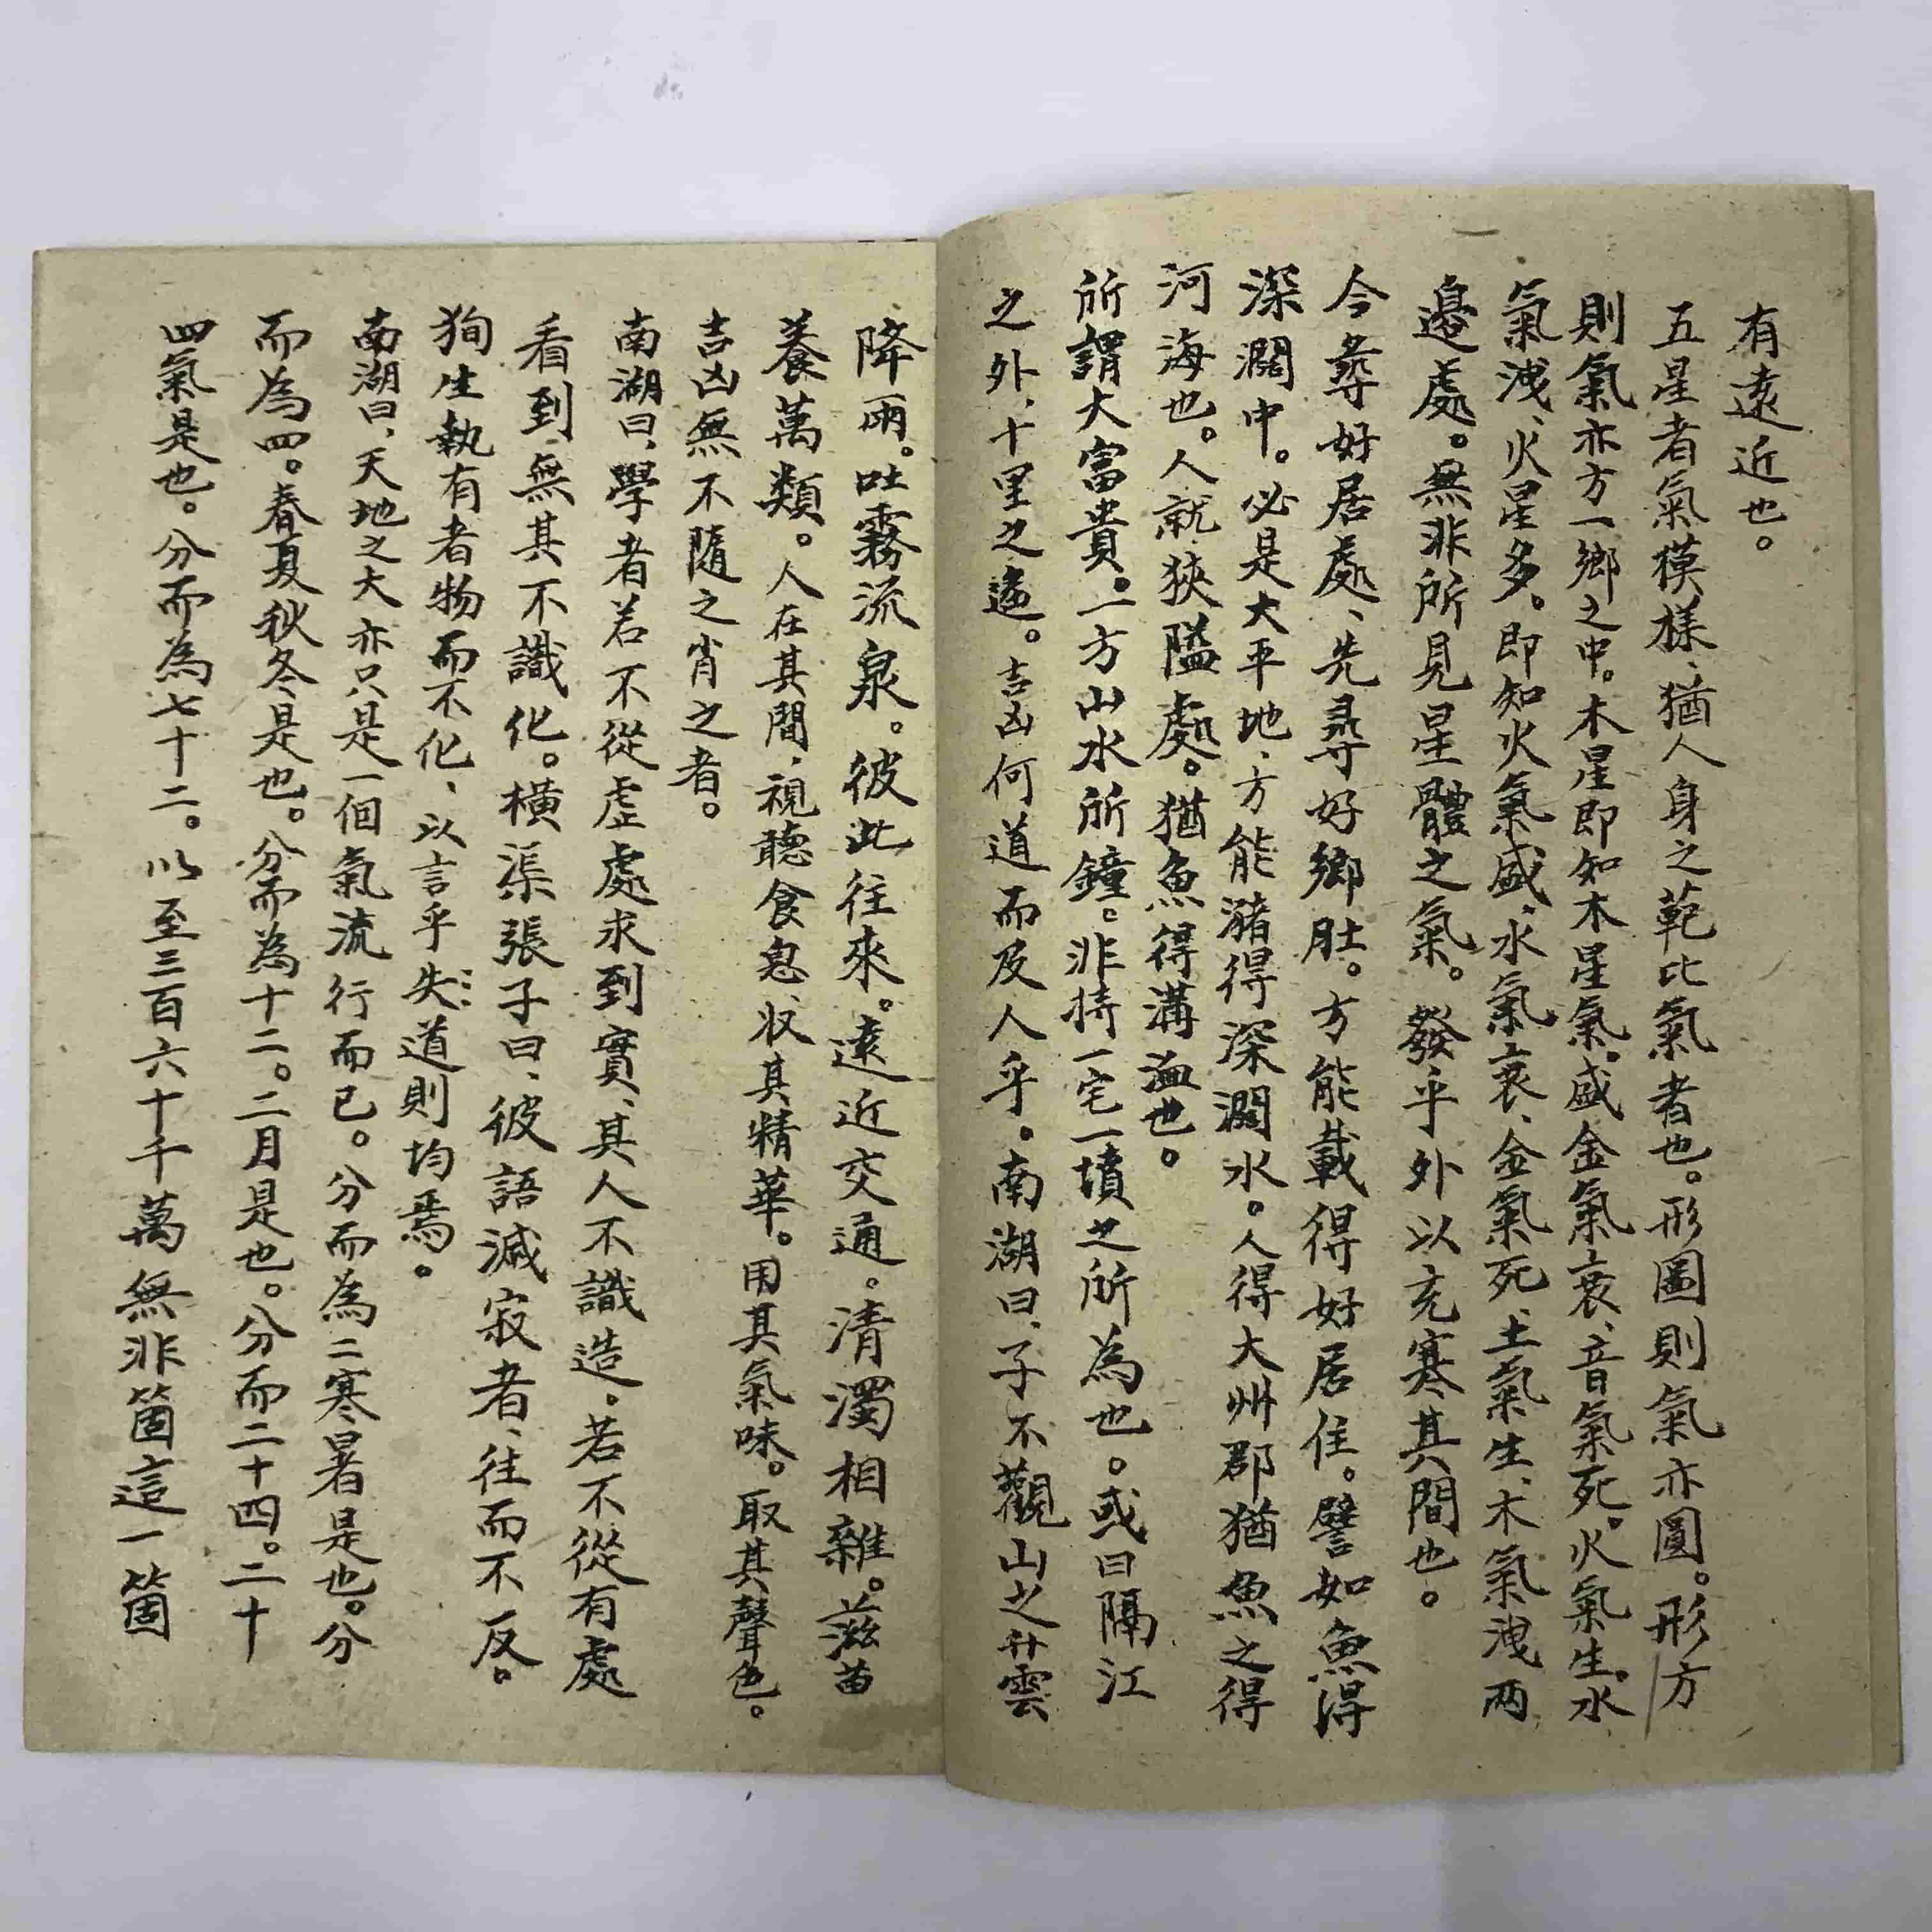 有遠近也。
五星者氣模樣、猶人身之範比氣者也。形圓則氣亦圓。形方
則氣亦方一鄉之中。木星即知木星氣。盛金氣衰、音氣死。火氣生。水
氣洩、火星多。即知火氣盛、水氣衰、金氣死、土氣生、木氣洩兩
邉處。無非所見星體之氣。發乎外以充寒其間也。
今尋好居處、先尋好鄉肚。方能載得好居住。譬如魚得
深濶中。必是大平地、方能瀦得深濶水。人得大州郡猶魚之得
河海也。人就狹隘處。猶魚得溝洫也。
所謂大富貴。一方山水所鐘。非持一宅一墳之所為也。或曰隔江
之外、十里之遙。吉凶何道而及人乎。南湖曰、子不觀山之升雲
降雨。吐霧流泉。彼此往來。遠近交通。清濁相雜。滋苗
養萬類。人在其間、視聽食息、収其精華。用其氣味。取其聲色。
吉凶無不隨之肖之者。
南湖曰、學者若不從虛處求到實、其人不識造。若不從有處
看到無其不識化。橫渠張子曰、彼語滅寂者、往而不反。
狥生執有者物而不化、以言乎失道則均焉。
南湖曰、天地之大亦只是一個氣流行而已。分而為二寒暑是也。分
而為四。春夏秋冬是也。分而為十二。二月是也。分而二十四。二十
四氣是也。分而為七十二。以至三百六十千萬無非箇這一箇